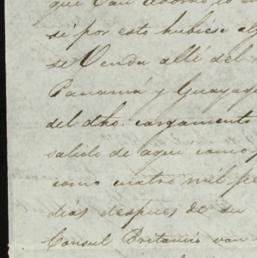 que van
si por esto hubiese
se Venda allí del
Panamá y Guayaq
del dho. cargamento
salido de aquí como
como cuatro mil pe
dias despues de su
Consul Britanico van